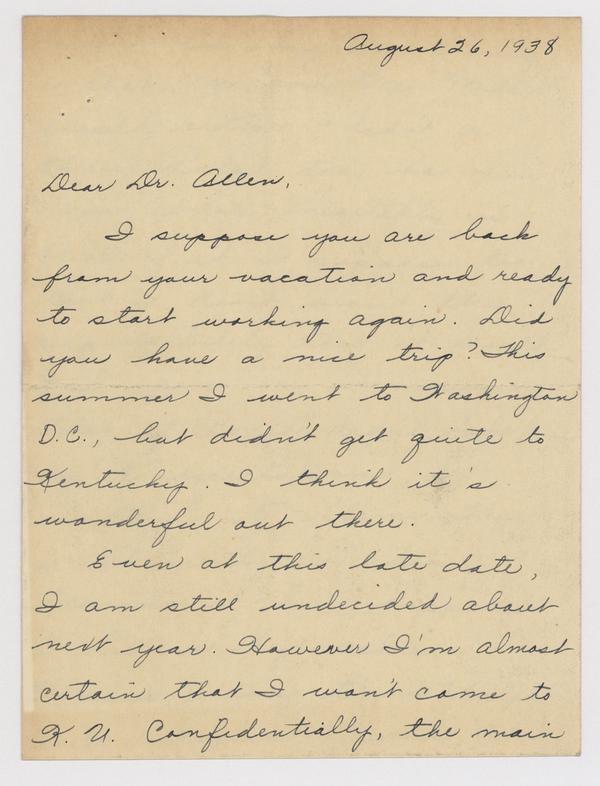 August 26, 1938
Dear Dr. Allen,
I suppose you are back
from your vacation and ready
to start working again. Did
you have a nice trip? This
summer I went to Washington
D.C., but didn't get quite to
Kentucky. I think it's
wonderful out there.
Even at this late date,
I am still undecided about
next year. However I'm almost
certain that I won't come to
K. U. Confidentially, the main